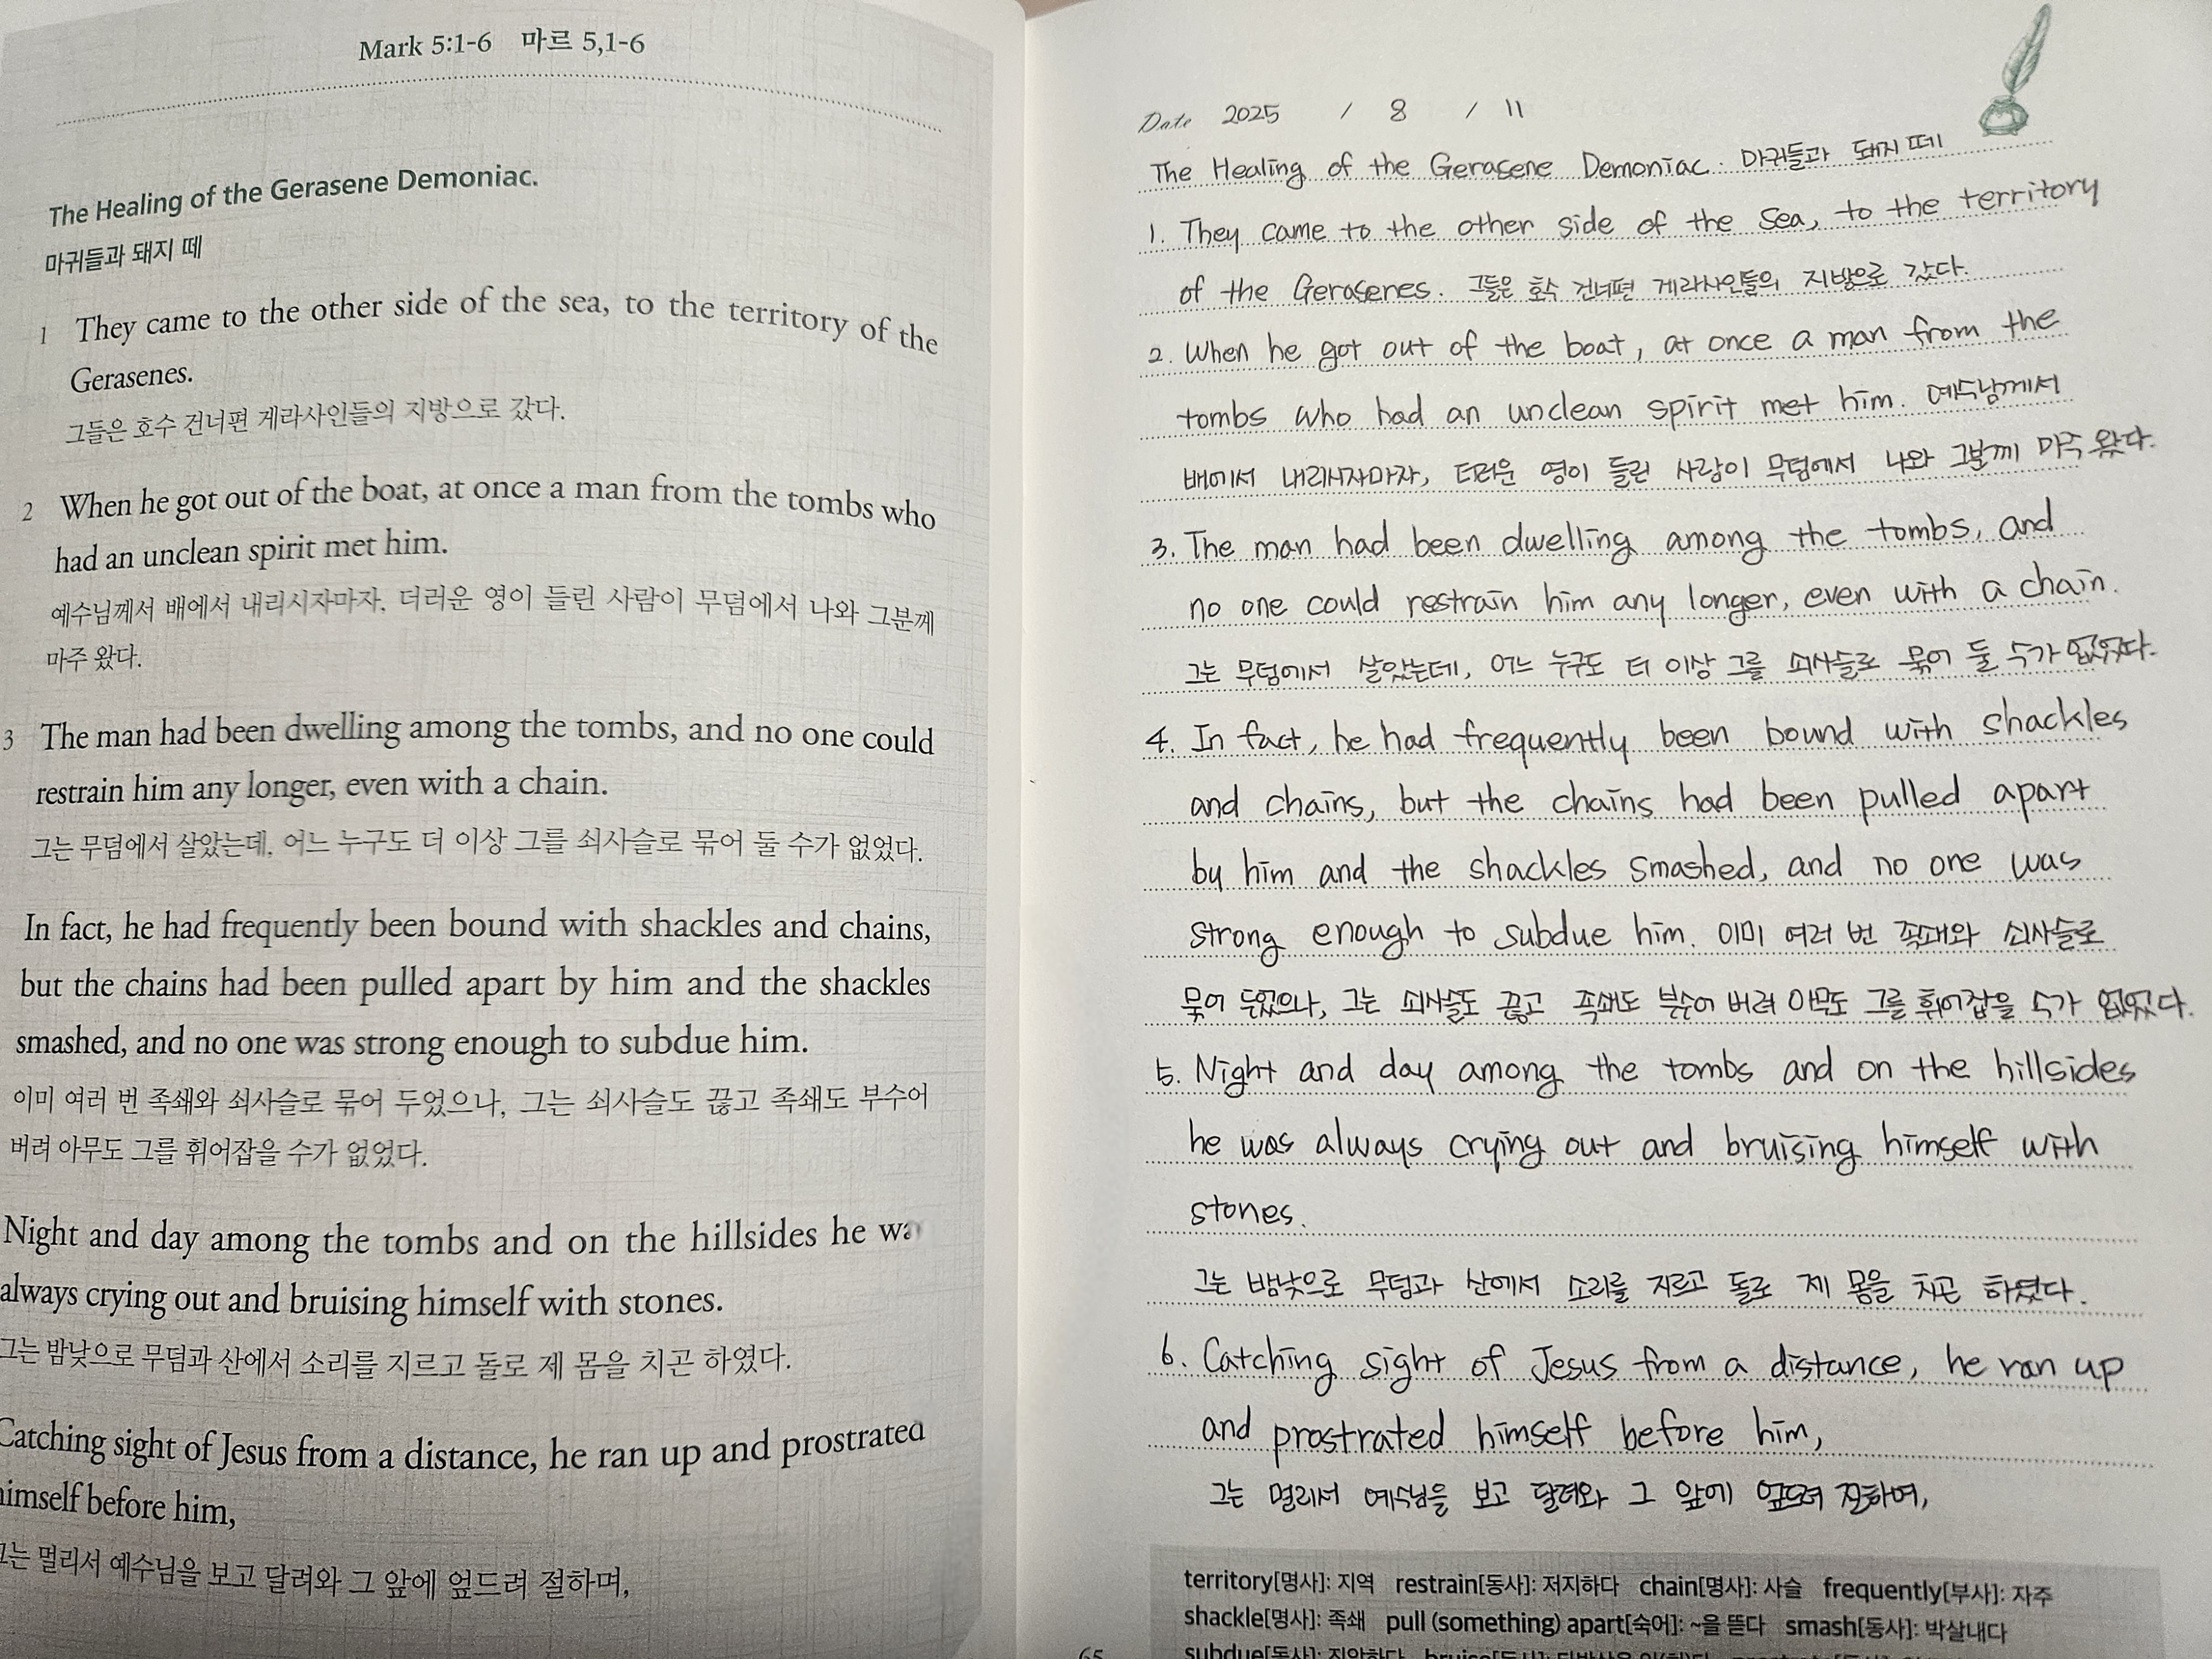 Mark 5:1-6 마르 5,1-6
The Healing of the Gerasene Demoniac.
마귀들과 돼지 떼
1 They came to the other side of the sea, to the territory of the
Gerasenes.
그들은 호수 건너편 게라사인들의 지방으로 갔다.
2 When he got out of the boat, at once a man from the tombs who
had an unclean spirit met him.
예수님께서 배에서 내리시자마자, 더러운 영이 들린 사람이 무덤에서 나와 그분께
마주 왔다.
3 The man had been dwelling among the tombs, and no one could
restrain him any longer, even with a chain.
그는 무덤에서 살았는데, 어느 누구도 더 이상 그를 쇠사슬로 묶어 둘 수가 없었다.
In fact, he had frequently been bound with shackles and chains,
but the chains had been pulled apart by him and the shackles
smashed, and no one was strong enough to subdue him.
이미 여러 번 족쇄와 쇠사슬로 묶어 두었으나, 그는 쇠사슬도 끊고 족쇄도 부수어
버려 아무도 그를 휘어잡을 수가 없었다.
Night and day among the tombs and on the hillsides he wa
always crying out and bruising himself with stones.
그는 밤낮으로 무덤과 산에서 소리를 지르고 돌로 제 몸을 치곤 하였다.
Catching sight of Jesus from a distance, he ran up and prostrated
himself before him,
그는 멀리서 예수님을 보고 달려와 그 앞에 엎드려 절하며,
Date 2025 / 8 / 11
The Healing of the Gerasene Demoniac. 마귀들과 돼지 떼
1. They came to the other side of the sea, to the territory
of the Gerasenes. 그들은 호수 건너편 게라사인들의 지방으로 갔다.
2. When he got out of the boat, at once a man from the
tombs who had an unclean spirit met him. 예수님께서
배에서 내리시자마자, 더러운 영이 들린 사람이 무덤에서 나와 그분께 마주 왔다.
3. The man had been dwelling among the tombs, and
no one could restrain him any longer, even with a chain.
그는 무덤에서 살았는데, 어느 누구도 더 이상 그를 쇠사슬로 묶어 둘 수가 없었다.
4. In fact, he had frequently been bound with shackles
and chains, but the chains had been pulled apart
by him and the shackles smashed, and no one was
strong enough to subdue him. 이미 여러 번 족쇄와 쇠사슬로
묶어 두었으나, 그는 쇠사슬도 끊고 족쇄도 부수어 버려 아무도 그를 휘어잡을 수가 없었다.
5. Night and day among the tombs and on the hillsides
he was always crying out and bruising himself with
stones.
그는 밤낮으로 무덤과 산에서 소리를 지르고 돌로 제 몸을 치곤 하였다.
6. Catching sight of Jesus from a distance, he ran up
and prostrated himself before him,
그는 멀리서 예수님을 보고 달려와 그 앞에 엎드려 절하며,
territory[명사]: 지역 restrain[동사]: 저지하다 chain[명사]: 사슬 frequently[부사]: 자주
shackle[명사]: 족쇄 pull (something) apart[숙어]: ~을 뜯다 smash[동사]: 박살내다
65